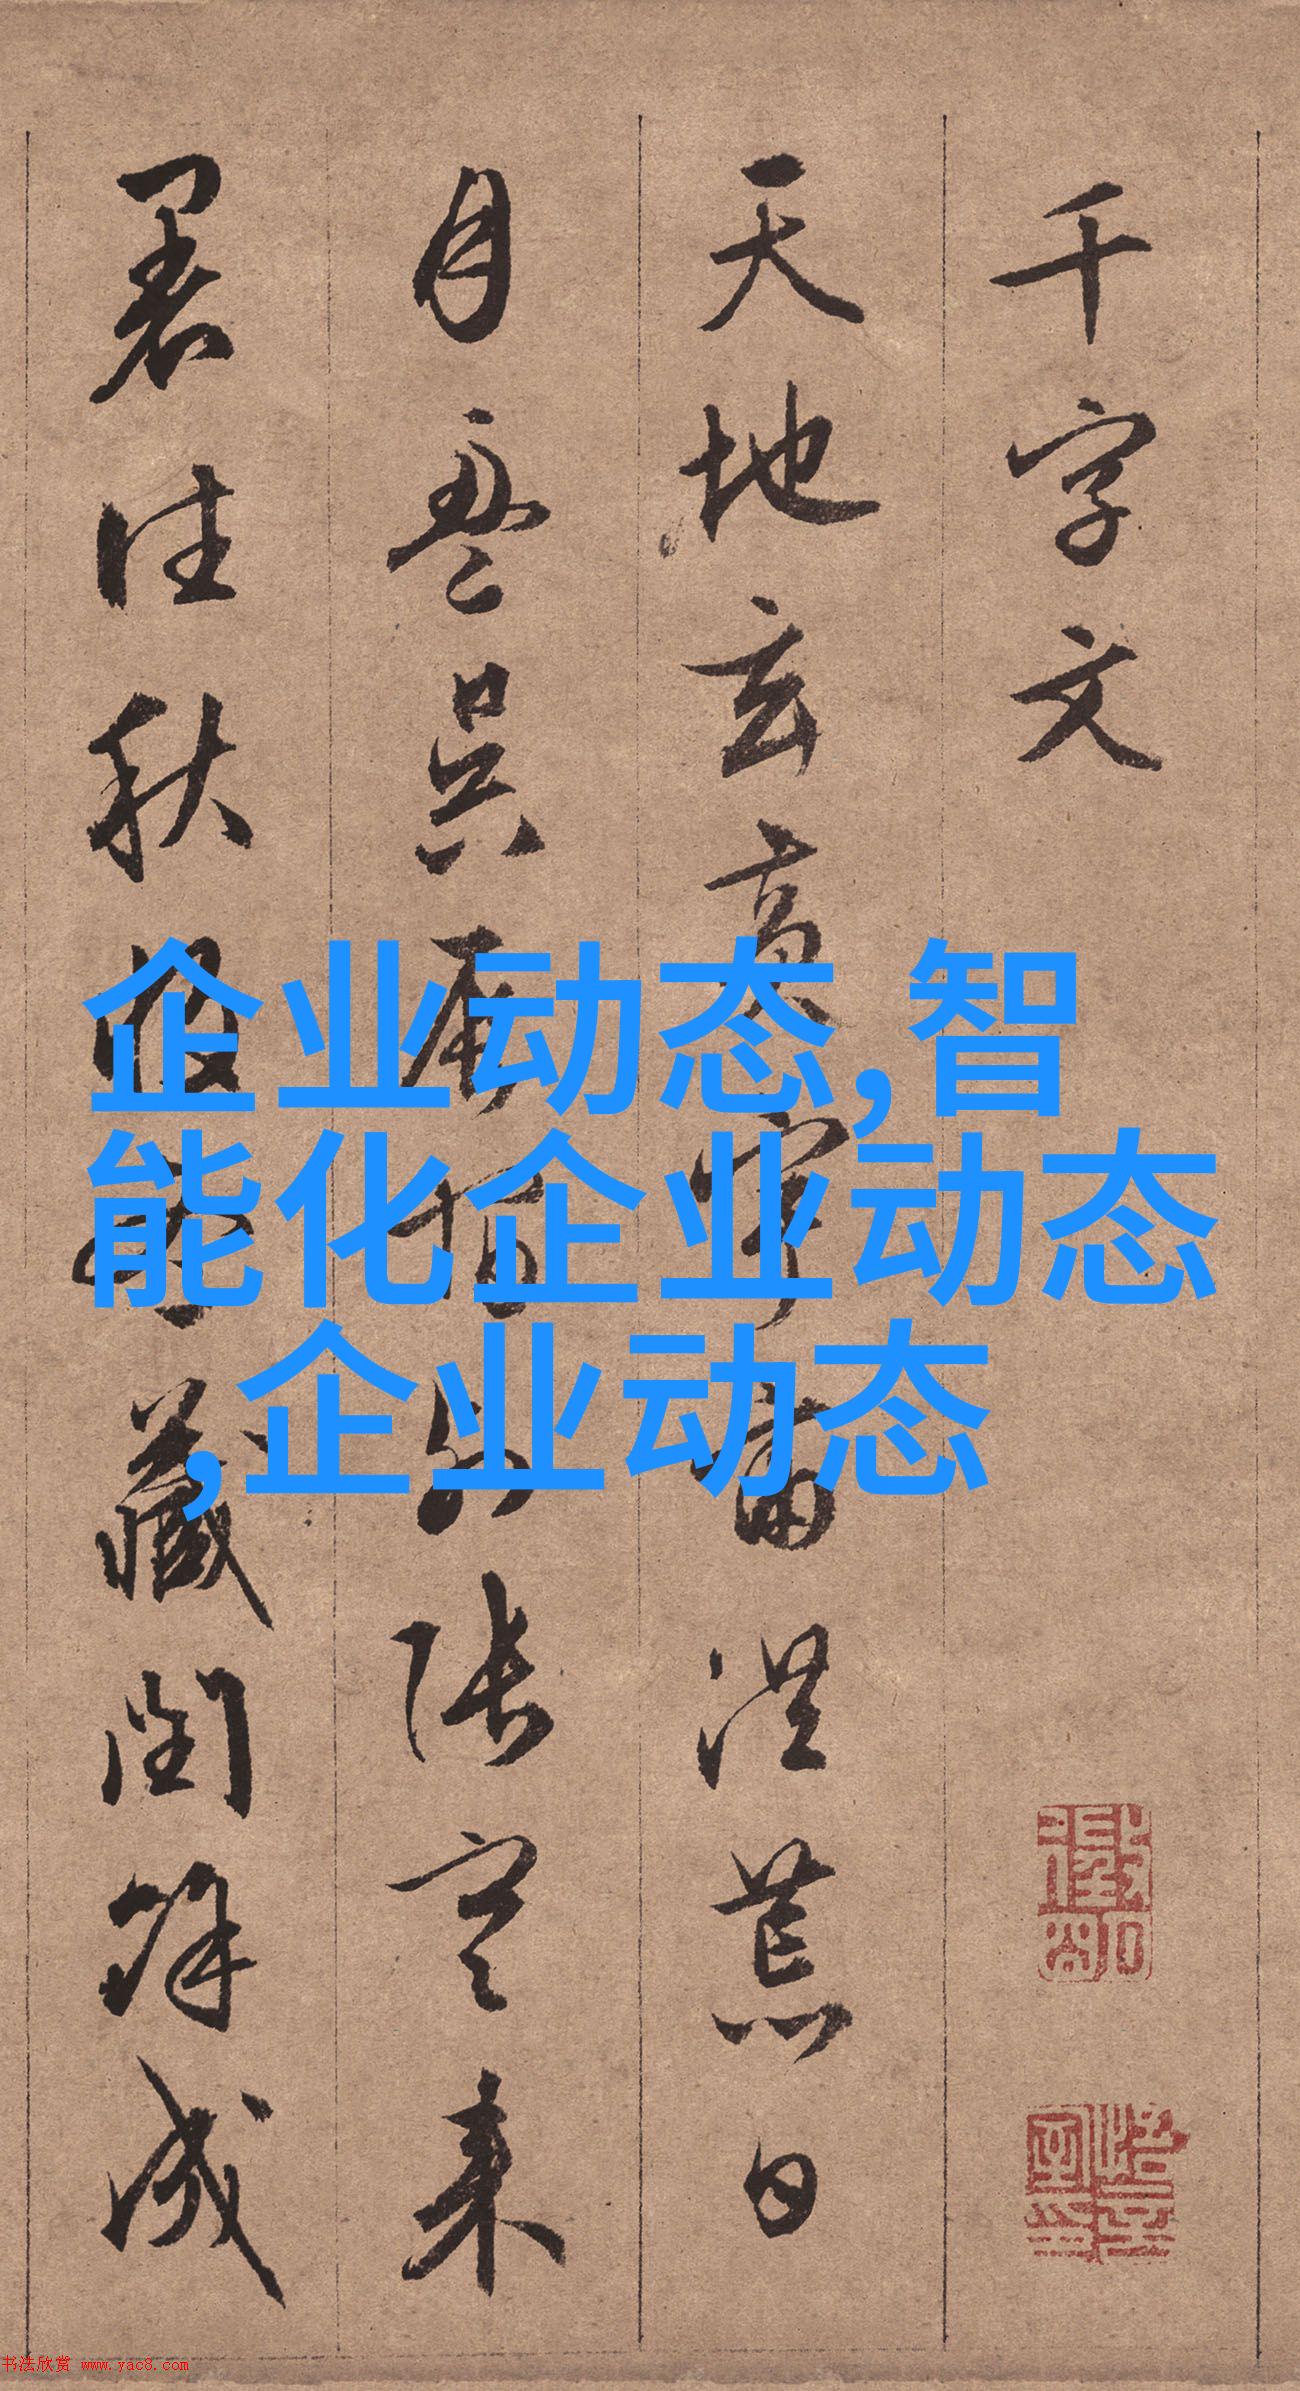 千字文
天地玄黄宇宙洪荒日
月盈昃辰宿列張寒来
暑往秋收冬藏閏餘成
企业动态,智
能化企业动态
,企业动态
书法欣赏 www.yac8.com